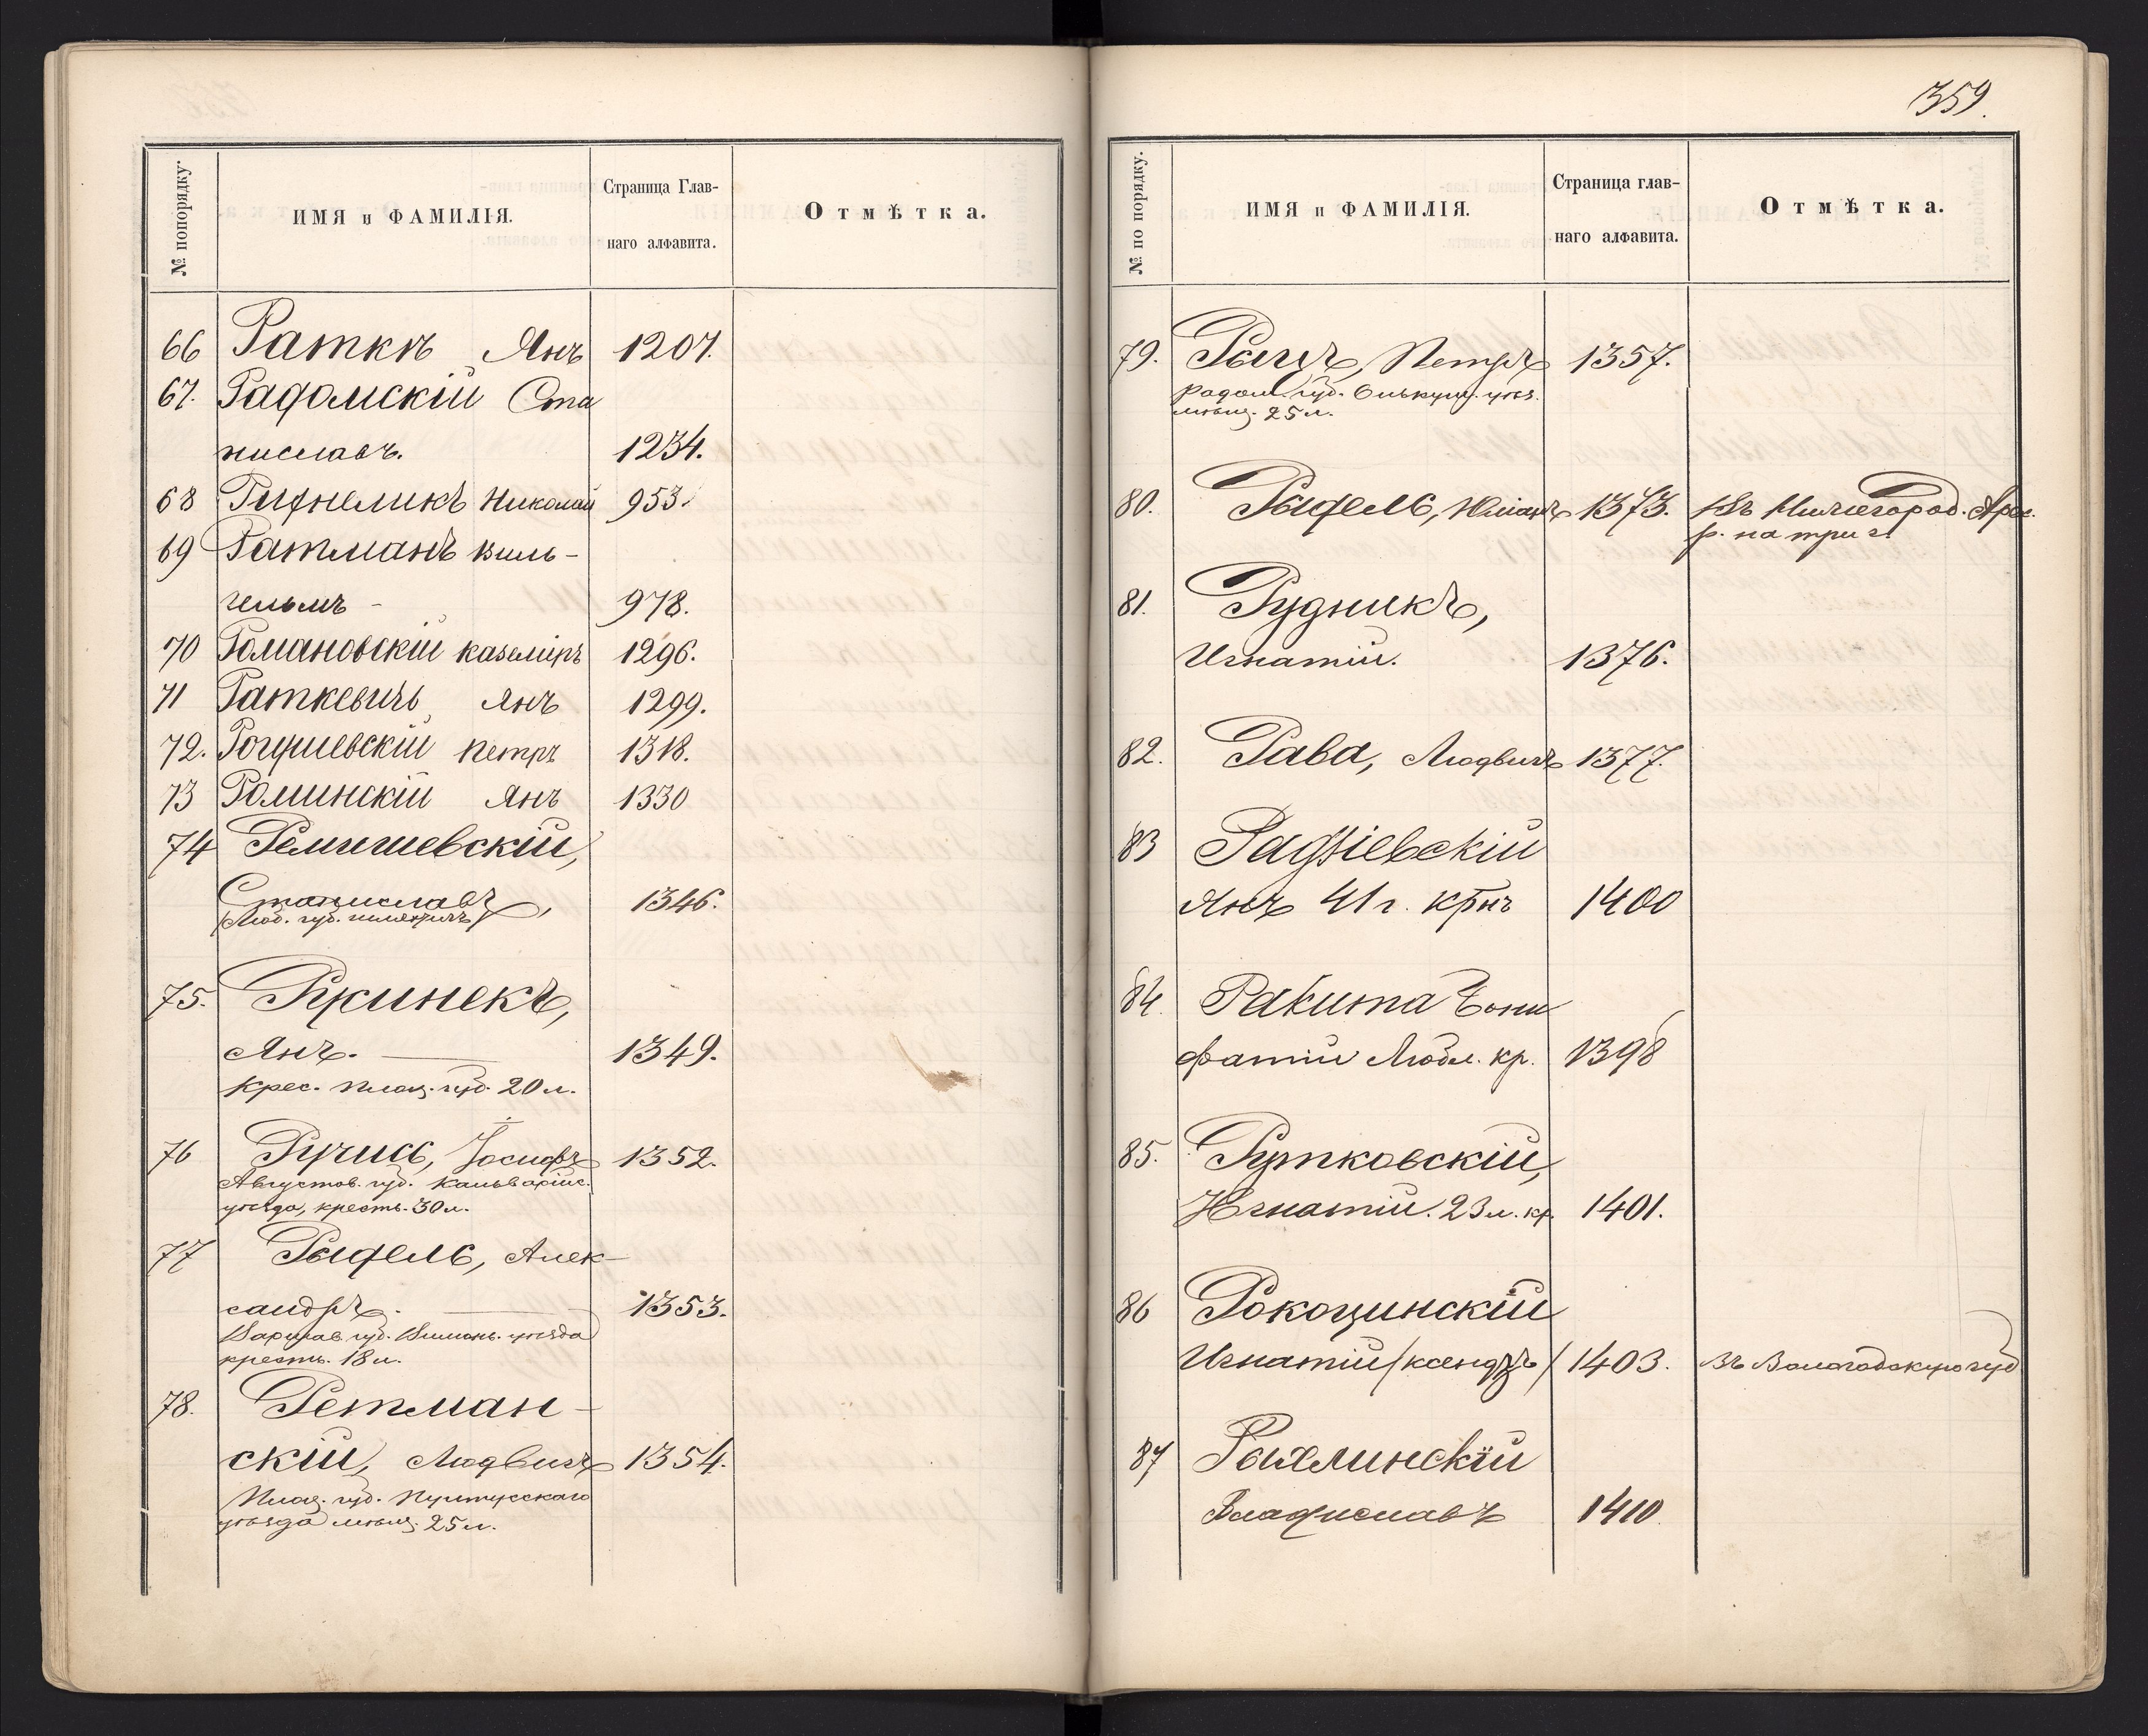 № попорядку.
ИМЯ и ФАМИЛІЯ.
Страница Глав-
наго алфавита.
Отмѣтка.
66 Раткъ Янъ 1207.
67. Радомскій Ста
ниславъ. 1234.
68 Николай 953.
69 Ратманъ Виль-
гельмъ - 978.
70 Романовскій Каземіръ 1296.
71 Раткевичъ Янъ 1299.
72. Петръ 1318.
73 Роминскій Янъ 1330
74 Ремишевскій,
Станиславъ, 1346.
Люб. губ. шляхтичъ
75. Ржинекъ,
Янъ. — 1349.
Крес. Плоц. губ. 20 л.
76 Ручис, Іосифъ 1352.
Августов. губ. Кальварійс.
уѣзда, крестъ. 30 л.
77 Рыдель, Алек-
сандръ. — 1353.
Варшав. губ. уѣзда
крестъ. 18 л.
78. Ретман-
скій, Людвигъ 1354.
Плоц. губ. Пултусскаго
уѣзда мѣщ. 25 л.
359.
№ по порядку.
ИМЯ и ФАМИЛІЯ.
Страница глав-
наго алфавита.
Отмѣтка.
79. Петръ 1357.
Радом. губ. Олькуш. уѣз.
мѣщ. 25 л.
80. Рыдель, Юліанъ 1373. Въ Нижегород. Арес.
р. на три г.
81. Рудникъ,
Игнатій. 1376.
82. Рава, Людвигъ 1377.
83 Радзіевскій
Янъ 41 г. крнъ 1400
84. Ракита Бони
фатій Любл. кр. 1398
85. Рутковскій,
Игнатій. 23 л. кр. 1401.
86 Рокошинскій
Игнатій /ксендзъ/ 1403. Въ Вологодскую губ
87 Рыхлинскій
Владиславъ 1410